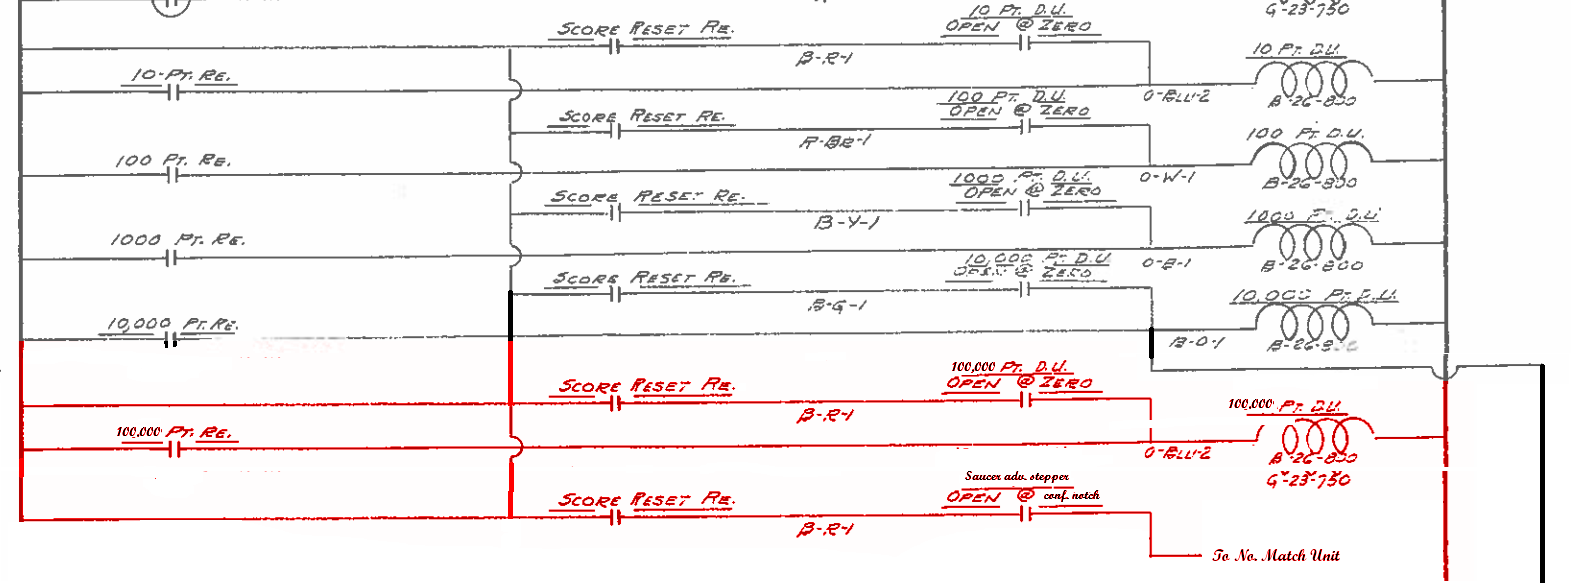 10 PT. D.U.
G-23-750
SCORE RESET RE.
OPEN @ ZERO
B-R-1
10 PT. D.U.
10-PT. RE.
O-BLU-2
B-26-800
100 PT. D.U.
SCORE RESET RE.
OPEN @ ZERO
R-BR-1
100 PT. D.U.
100 PT. RE.
O-W-1
B-26-800
1000 PT. D.U.
SCORE RESET RE.
OPEN @ ZERO
B-Y-1
1000 PT. D.U.
1000 PT. RE.
O-B-1
B-26-800
10,000 PT. D.U.
SCORE RESET RE.
OPEN @ ZERO
B-G-1
10,000 PT. D.U.
10,000 PT. RE.
B-O-1
B-26-800
100,000 PT. D.U.
SCORE RESET RE.
OPEN @ ZERO
B-R-1
100,000 PT. D.U.
100,000 PT. RE.
O-BLU-2
B-26-800
G-23-750
Saucer adv. stepper
SCORE RESET RE.
OPEN @ conf. notch
B-R-1
To No. Match Unit